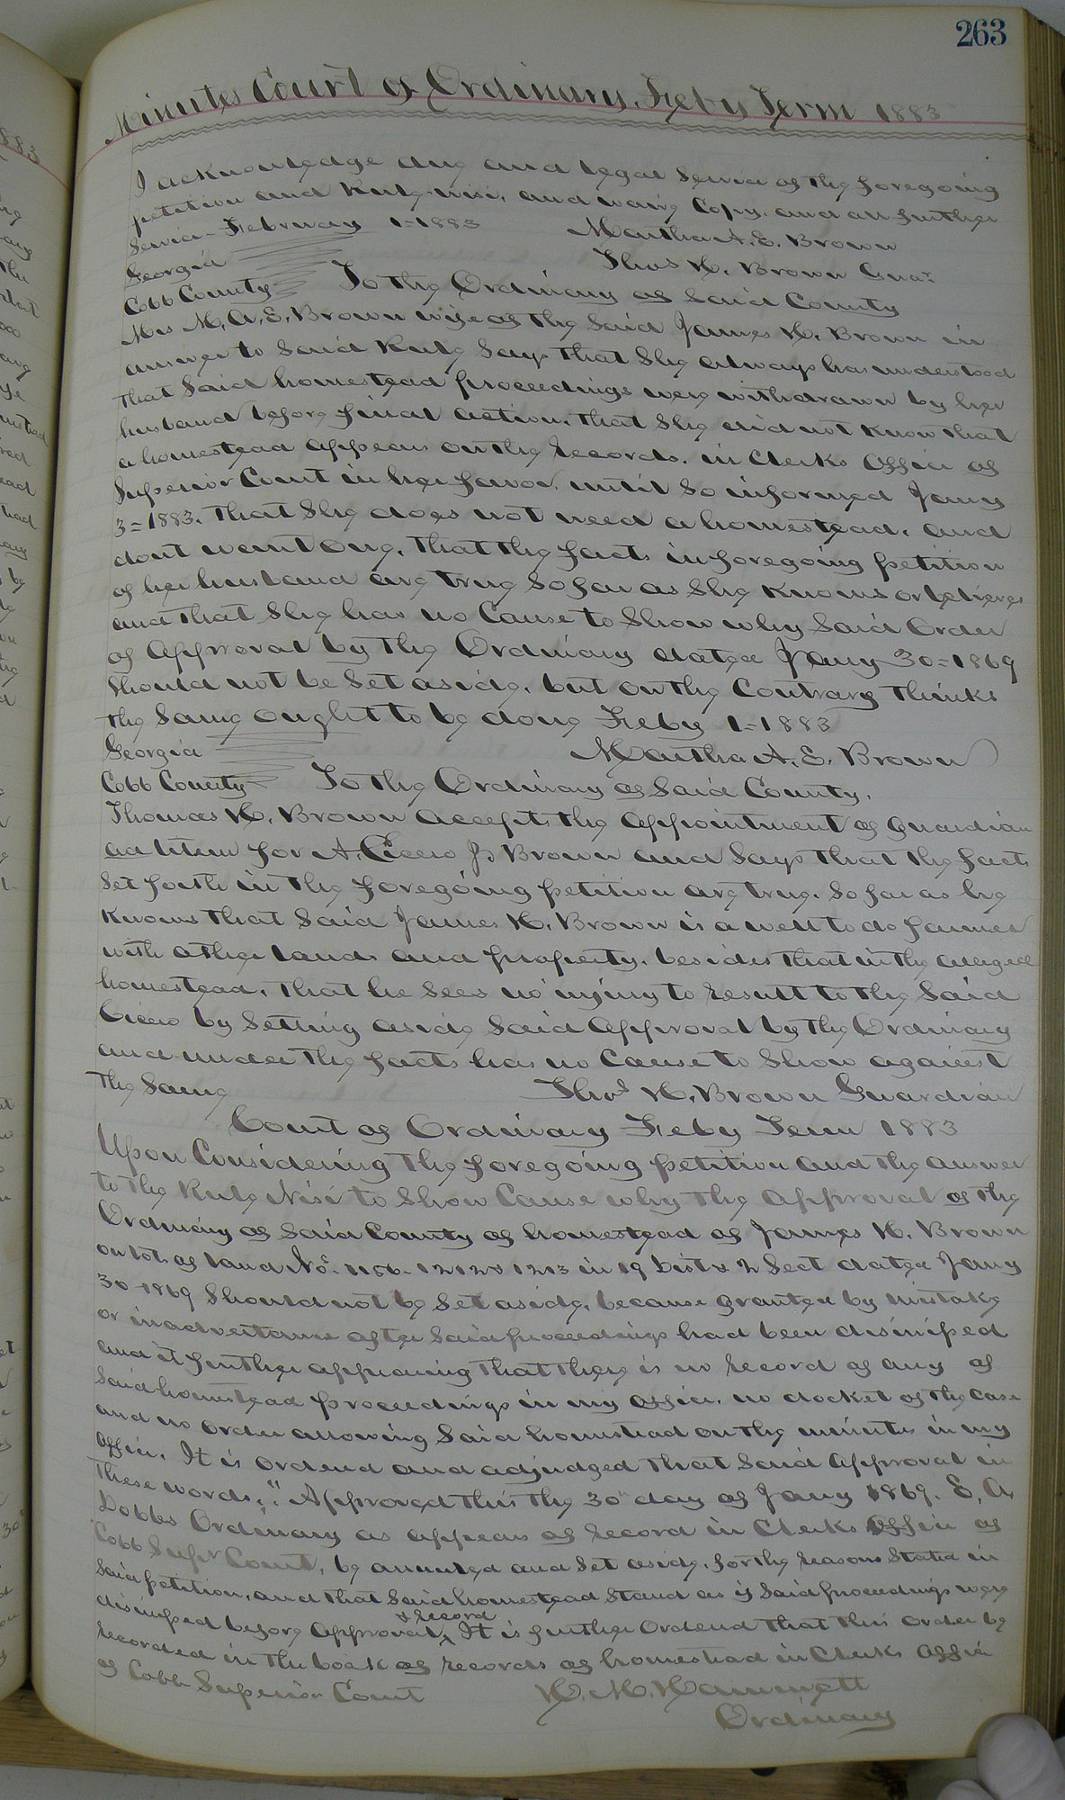 263
Minutes Court of Ordinary, Feby Term 1883
I acknowledge due and legal service of the foregoing
petition and Rule nisi, and waive Copy, and all further
Service - February 1-1883 Martha A. E. Brown
Thos H. Brown Guar.
Georgia
Cobb County To the Ordinary of Said County
Mrs M. A. E. Brown wife of the said James H. Brown in
answer to Said Rule Says that She always has understood
that Said homestead proceedings were withdrawn by her
husband before final action, that She did not Know that
a homestead appears on the Records, in Clerks Office of
Superior Court in her favor, until So informed Jany
3=1883. that She does not need a homestead, and
dont want one, that the facts in foregoing petition
of her husband are true So far as She Knows or believes
and that She has no Cause to Show why Said Order
of Approval by the Ordinary dated Jany 30=1869
Should not be Set aside, but on the Contrary thinks
the Same ought to be done Feby 1-1883
Martha A. E. Brown
Georgia
Cobb County To the Ordinary of Said County,
Thomas H. Brown accepts the appointment of guardian
ad litem for A. Cicero J. Brown and Says that the facts
Set forth in the foregoing petition are true, So far as he
Knows that Said James H. Brown is a well to do farmer
with other lands and property, besides that in the alleged
homestead, that he Sees no injury to result to the Said
Cicero by Setting aside Said Approval by the Ordinary
and under the facts has no Cause to Show against
the Same Thos H. Brown Guardian
Court of Ordinary Feby Term 1883
Upon Considering the foregoing petition and the answer
to the Rule Nisi to Show Cause why the Approval of the
Ordinary of Said County of homestead of James H. Brown
on lots of land Nos. 1156. 1212 & 1213 in 19 Dist & 2 Sect dated Jany
30-1869 Should not be Set aside, because granted by mistake
or inadvertence after Said proceedings had been dismissed
and it further appearing that there is no record of any of
Said homestead proceedings in my office, no docket of the case
and no order allowing Said homestead on the minutes in my
office. It is ordered and adjudged that Said Approval in
these words, "Approved this the 30th day of Jany 1869. E. A.
Dobbs Ordinary as appears of record in Clerks office of
Cobb Supr Court, be annulled and Set aside, for the reasons Stated in
Said petition, and that Said homestead Stand as if Said proceedings were
dismissed before approval & record It is further Ordered that this order be
recorded in the book of records of homestead in Clerks office
of Cobb Superior Court H. M. Hammett
Ordinary